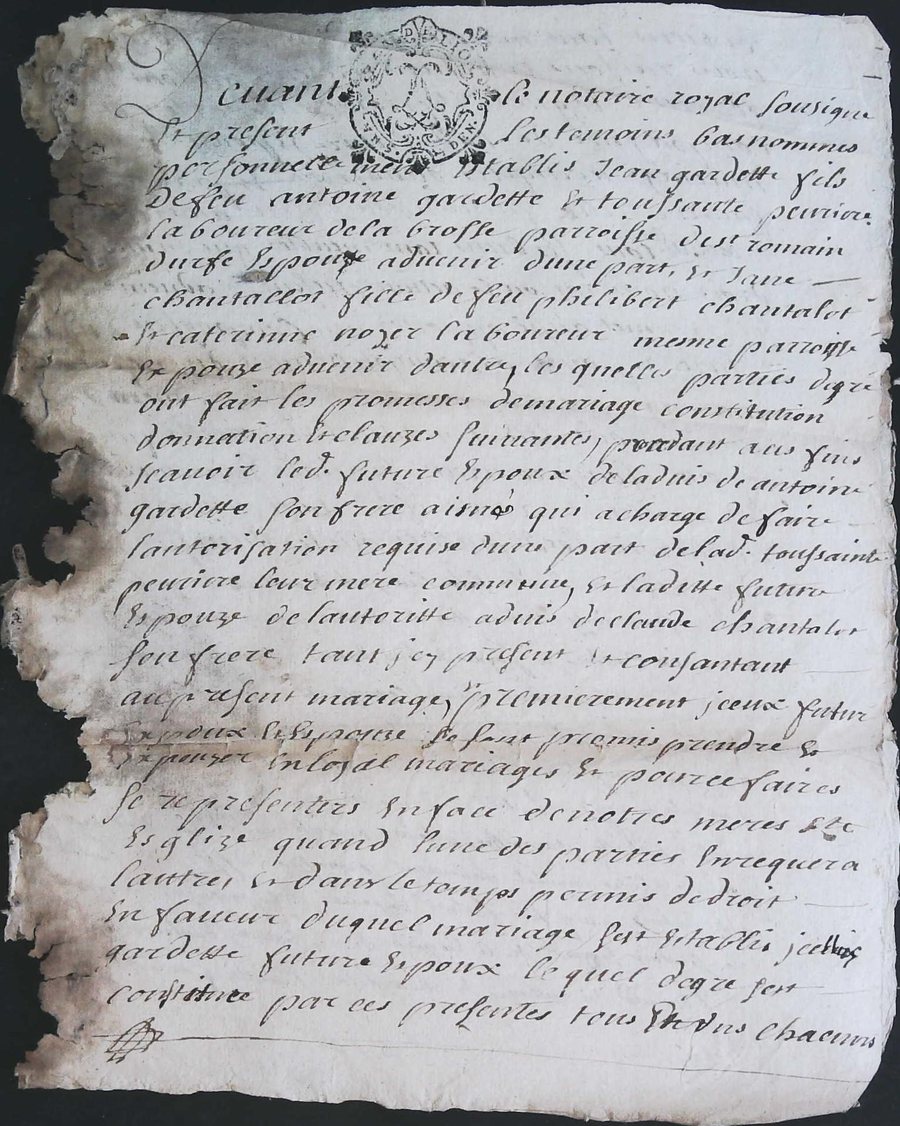 DE LION
DEN.
Devant le notaire royal sousigne
Et present Les temoins bas nommes
personnellement Establis Jean gardette fils
De feu antoine gardette Et toussante peuriere
laboureur de la brosse parroisse de st romain
durfe Espouze aduenir dune part, Et Jane
chantallot fille de feu philibert chantalot
Et caterinne noyer laboureur mesme parroisse
Expouze aduenir dautre, les quelles parties degre
ont fait les promesses demariage constitution
donnation Et clauzes suiuantes, aus fins
scauoir led. future Espoux deladuis de antoine
gardette son frere aisné qui a charge de faire
lautorisation requise dune part delad. toussainte
peuriere leur mere commune, Et laditte future
Espouze delautoritte aduis declaude chantalot
son frere tant jcy present Et consantant
au present mariage, premierement jceux futur
Expoux Et Espouze se sont promis prendre Et
Expouzer En loyal mariages Et pource faires
se representers En face denotres meres ste
Esglize quand lune des parties Enrequera
lautres Et dans le temps permis dedroit
En faueur duquel mariage sest Establis
gardette future Espoux le quel degre sest
constituee par ces presentes tous Et uns chacuns